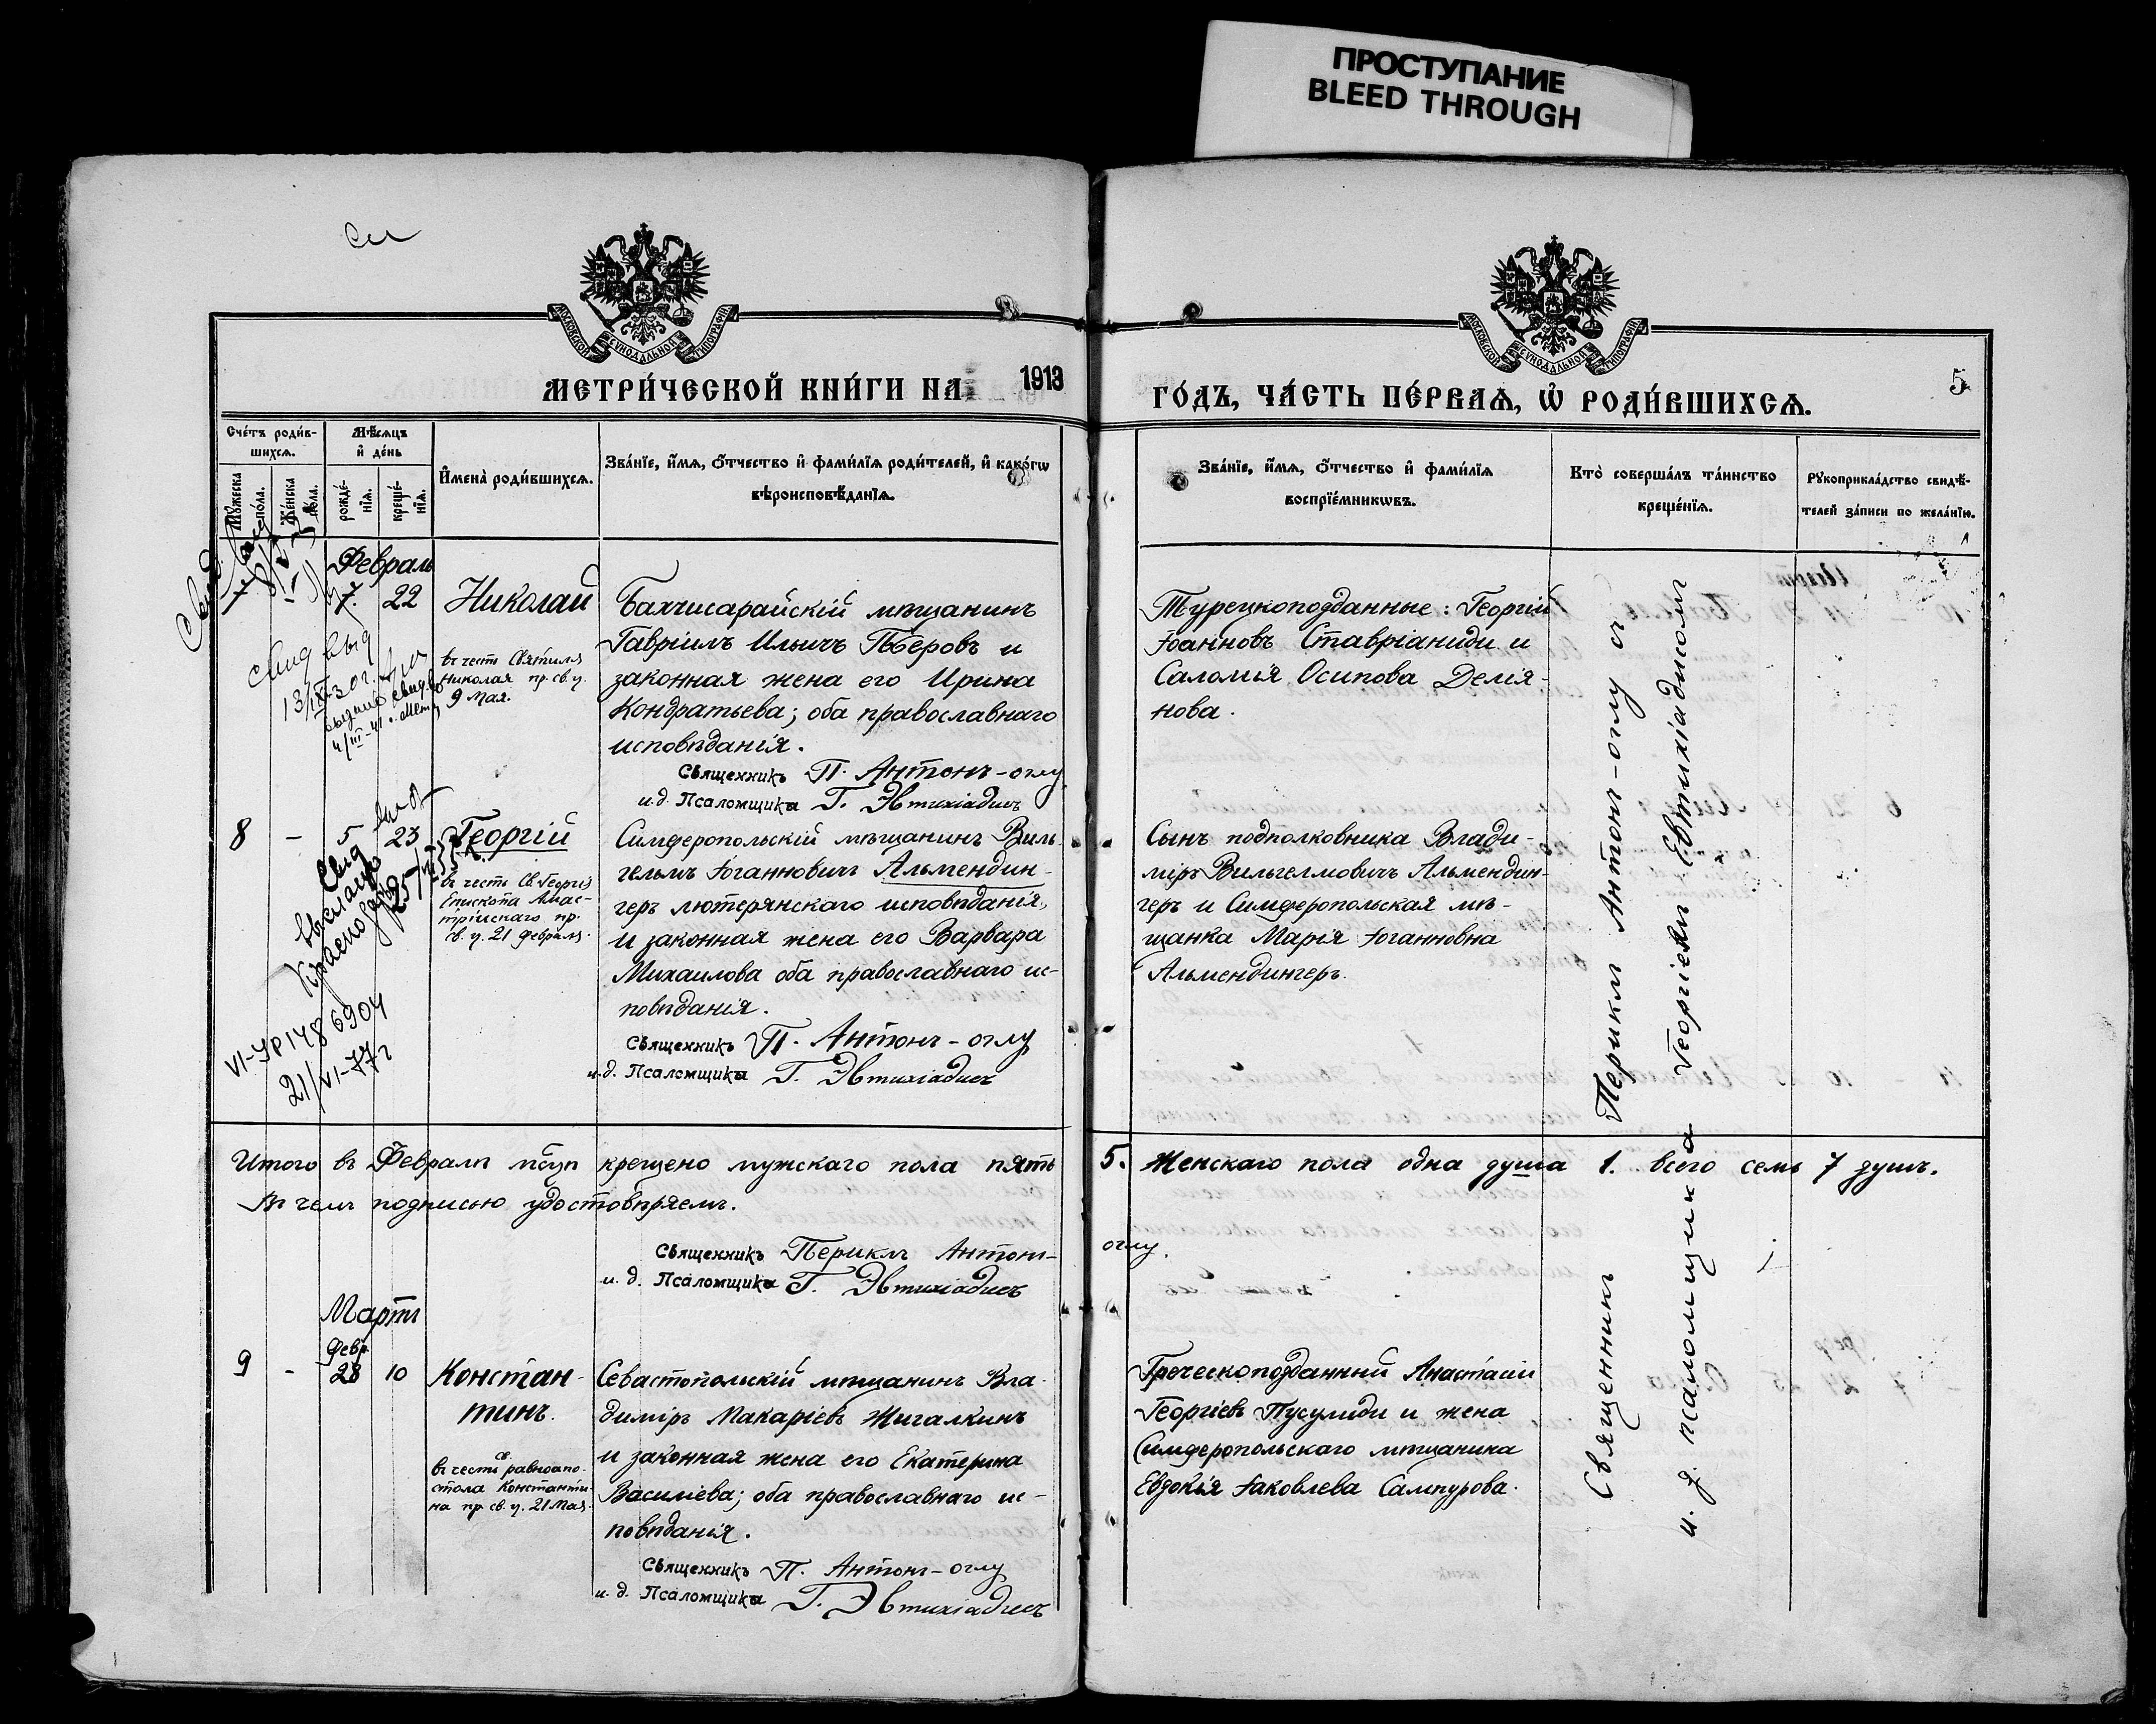 ПРОСТУПАНИЕ
BLEED THROUGH
МОСКОВСКОЙ СѴНОДАЛЬНОЙ ТИПОГРАФІИ
МОСКОВСКОЙ СѴНОДАЛЬНОЙ ТИПОГРАФІИ
МЕТРИ́ЧЕСКОЙ КНИ́ГИ НА 1913
ГО́ДЪ, ЧА́СТЬ ПЕ́РВАѦ, Ѡ҆ РОДИ́ВШИХСѦ.
5
Сче́тъ роди́в-
шихсѧ.
Мꙋ́жеска
по́ла.
Же́нска
по́ла.
Мѣ́сѧцъ
и҆ де́нь
рожде́-
нїѧ.
креще́-
нїѧ.
И҆мена̀ роди́вшихсѧ.
Зва́нїе, и҆́мѧ, ѻ҆́тчество и҆ фами́лїѧ роди́телей, и҆ како́гѡ
вѣроисповѣ́данїѧ.
Зва́нїе, и҆́мѧ, ѻ҆́тчество и҆ фами́лїѧ
воспрїе́мникѡвъ.
Кто̀ соверша́лъ та́инство
креще́нїѧ.
Рꙋкоприкла́дство свидѣ́-
телей за́писи по жела́нїю.
Февраль
7. 22
Николай
въ честь Святителя
Николая пр. св. ц.
9 Мая.
Бахчисарайскій мѣщанинъ
Гавріилъ Ильичъ и
законная жена его Ирина
Кондратьева; оба православнаго
исповѣданія.
Священникъ П. Антонъ-оглу
и.д. Псаломщика Г. Эвтихіадисъ
Турецкоподданные: Георгій
Іоанновъ Ставріаниди и
Саломія Осипова Делія-
нова.
Свид выд
13/IX-30 г.
4/III-41 г.
8 - 5 23
Георгій
въ честь Св. Георгія
Епископа Амас-
трійскаго пр.
св. ц. 21 февраля.
Симферопольскій мѣщанинъ Виль-
гельмъ Іоганновичъ Альмендин-
геръ лютерянскаго исповѣданія,
и законная жена его Варвара
Михаилова оба православнаго ис-
повѣданія.
Священникъ П. Антонъ-оглу
и.д. Псаломщика Г. Эвтихіадисъ
Сынъ подполковника Влади-
міръ Вильгелмовичъ Альмендин-
геръ и Симферопольская мѣ-
щанка Марія Іоганновна
Альмендингеръ.
Свид
выслано
VI-УР 1486904
21/VI-77 г
Итого въ Февралѣ м҃сцѣ крещено мужскаго пола пять 5. Женскаго пола одна душа 1. всего семь 7 душъ.
Въ чемъ подписью удостовѣряемъ.
Священникъ Периклъ Антонъ-
оглу.
и. д. Псаломщика Г. Эвтихіадисъ
Мартъ
9 - Февр. 28 10
Констан-
тинъ.
въ честь св. равноапо-
стола Константи-
на пр. св. ц. 21 Мая.
Севастопольскій мѣщанинъ Вла-
диміръ Макаріевъ Жигалкинъ
и законная жена его Екатерина
Василіева; оба православнаго ис-
повѣданія.
Священникъ П. Антонъ-оглу
и. д. Псаломщика Г. Эвтихіадисъ
Греческоподданный Анастасій
Георгіевъ Пусулиди и жена
Симферопольскаго мѣщанина
Евдокія Іаковлева Сампурова.
Священникъ Периклъ Антонъ-оглу съ
и. д. псаломщика Георгіемъ Евтихіадисомъ